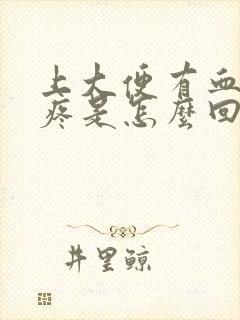 上大便有血
疼是怎麼回
井里鲸